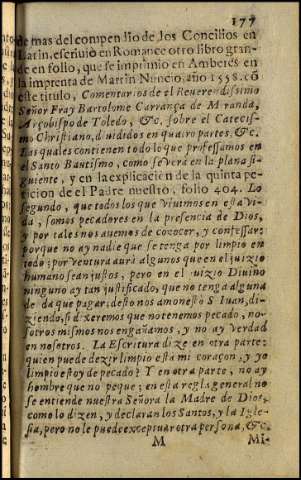 177
de mas del compendio de los Concilios en
Latin, escriuiò en Romance otro libro gran-
de en folio, que se imprimio en Amberes en
la imprenta de Martin Nuncio, año 1558. cõ
este titulo, Comentarios de el Reverendissimo
Señor Fray Bartolome Carrança de Miranda,
Arçobispo de Toledo, &c. sobre el Catecis-
mo Christiano, diuididos en quatro partes. &c.
Las quales contienen todo lo que professamos en
el Santo Bautismo, como se verà en la plana si-
guiente, y en la explicacion de la quinta pe-
ticion de el Padre nuestro, folio 404. Lo
segundo, que todos los que viuimos en esta vi-
da, somos pecadores en la presencia de Dios,
y por tales nos auemos de conocer, y confessar:
porque no ay nadie que se tenga por limpio en
todo: por ventura aurà algunos que en el juizio
humano sean justos, pero en el juizio Diuino
ninguno ay tan justificado, que no tenga alguna
de da que pagar; desto nos amonestò S. Iuan, di-
ziendo, si dixeremos que no tenemos pecado, no-
sotros mismos nos engañamos, y no ay verdad
en nosotros. La Escritura dize en otra parte:
quien puede dezir limpio està mi coraçon, y yo
limpio estoy de pecado? Y en otra parte, no ay
hombre que no peque; en esta regla general no
se entiende nuestra Señora la Madre de Dios,
como lo dizen, y declaran los Santos, y la Igle-
sia, pero no se puede exceptuar otra persona, &c.
M Mi-